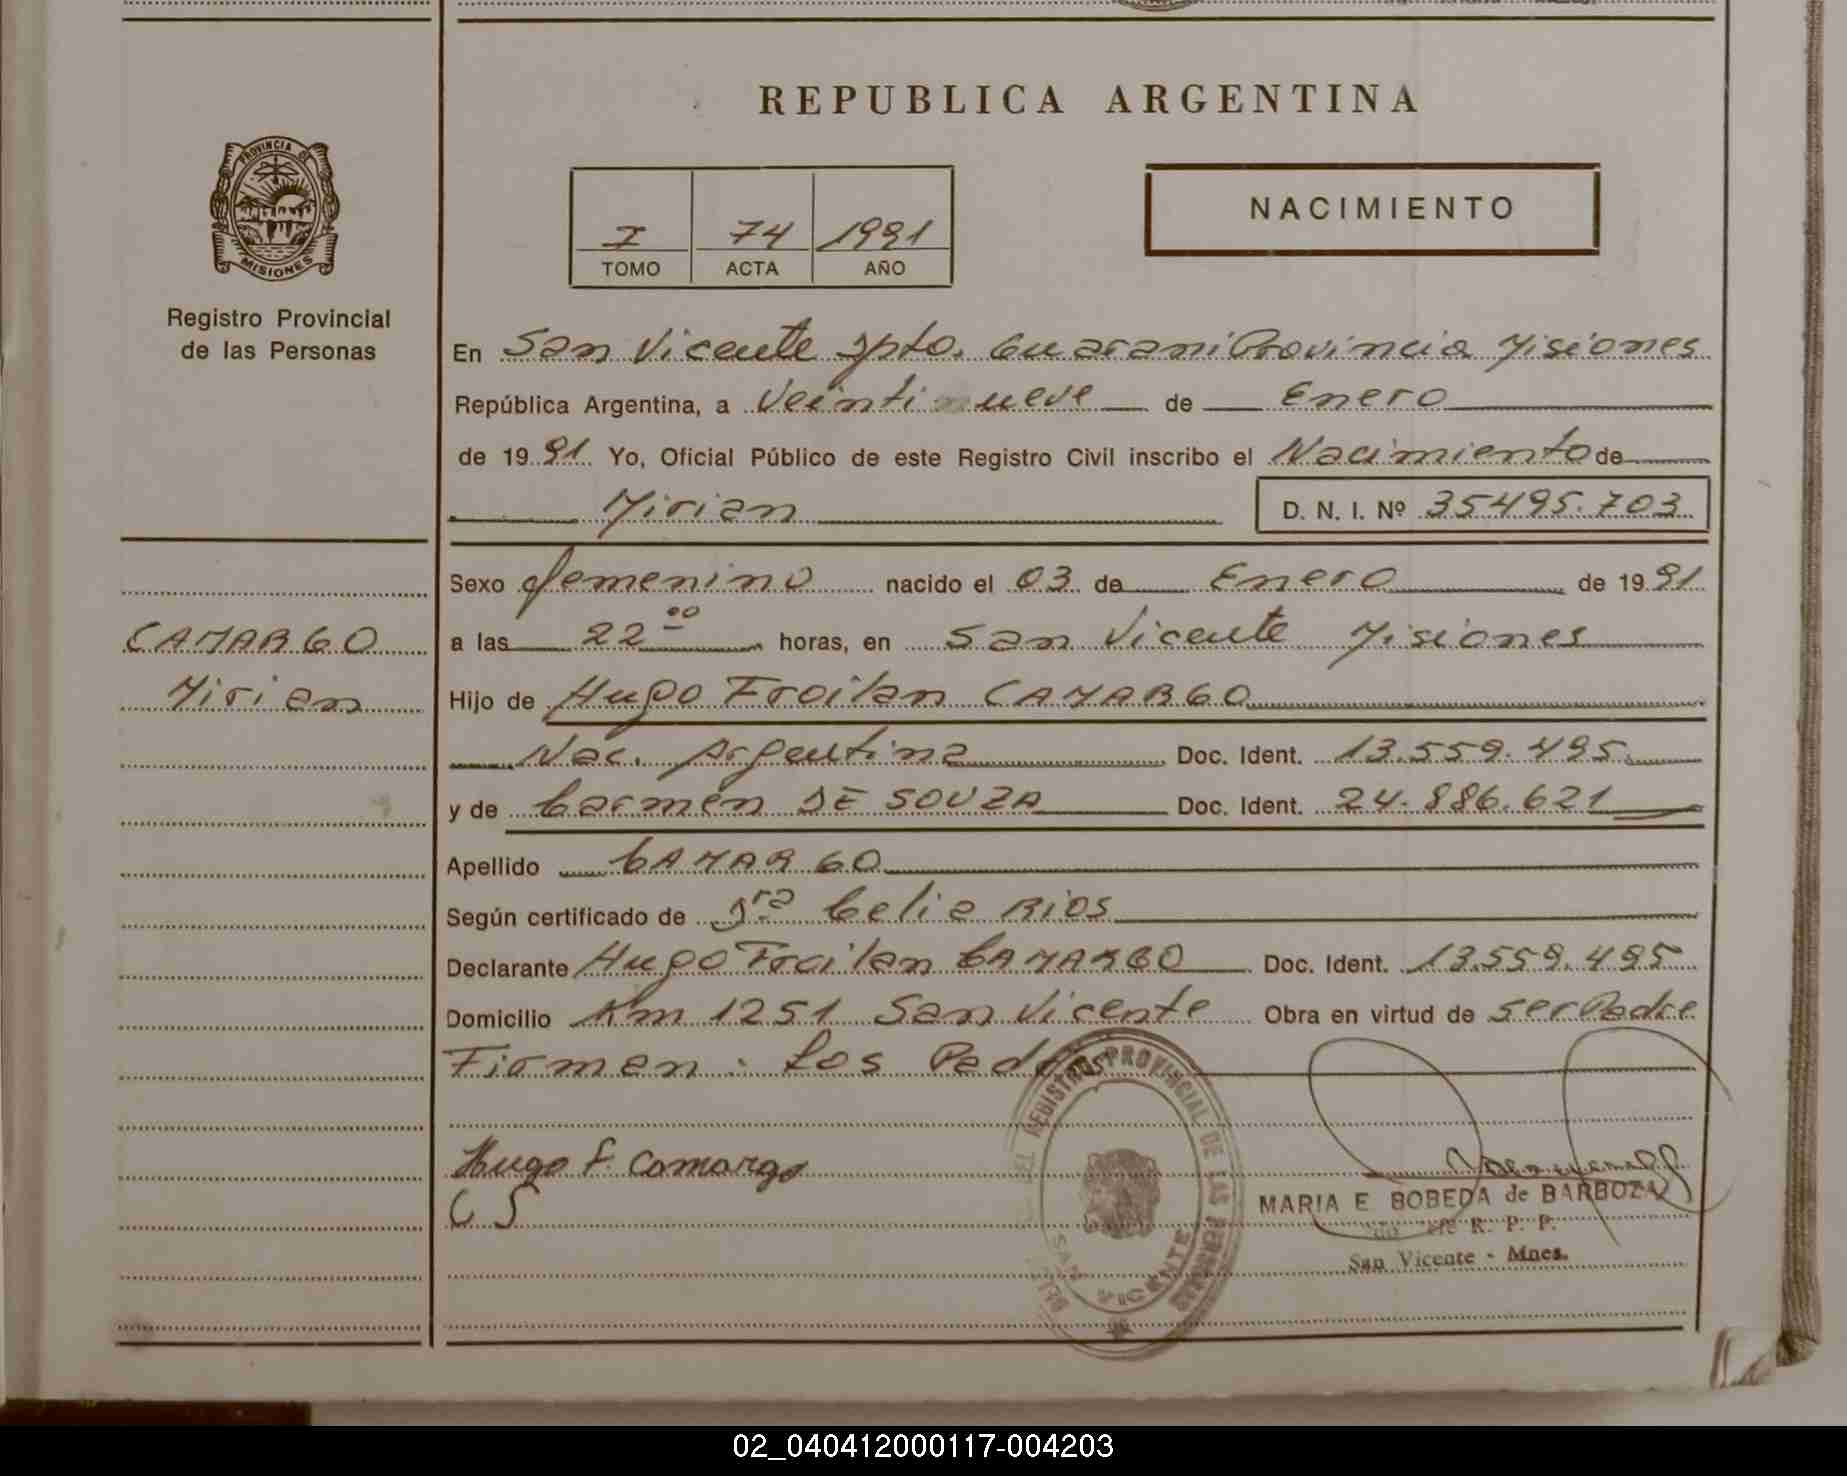 REPUBLICA ARGENTINA
PROVINCIA DE
MISIONES
Registro Provincial
de las Personas
I 74 1991
TOMO ACTA AÑO
NACIMIENTO
En San Vicente Dpto. Guarani Provincia Misiones
República Argentina, a Veinti nueve de Enero
de 1991 Yo, Oficial Público de este Registro Civil inscribo el Nacimiento de
Mirian D. N. I. Nº 35495.703
Sexo femenino nacido el 03 de Enero de 1991
CAMARGO
Mirian
a las 22 00 horas, en San Vicente Misiones
Hijo de Hugo Froilan CAMARGO
Nac. Argentina Doc. Ident. 13.559.495
y de Carmen DE SOUZA Doc. Ident. 24.886.621
Apellido CAMARGO
Según certificado de Dra Celia RIOS
Declarante Hugo Froilan CAMARGO Doc. Ident. 13.559.495
Domicilio Km 1251 San Vicente Obra en virtud de ser Padre
Firman: Los Padres
Hugo F. Camargo
C S
REGISTRO PROVINCIAL DE LAS PERSONAS
SAN VICENTE
MARIA E. BOBEDA de BARBOZA
R. P. P.
San Vicente - Mnes.
02_040412000117-004203